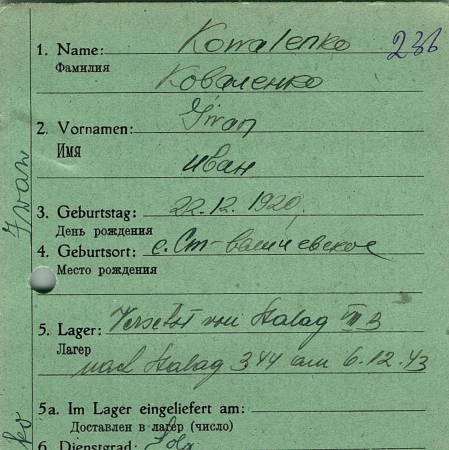 1. Name: Kowalenko 236
Фамилия Коваленко
2. Vornamen: Iwan
Имя Иван
3. Geburtstag: 22.12.1920
День рождения
4. Geburtsort: с. Ст-
Место рождения
5. Lager: Versetzt von Stalag III B
Лагер nach Stalag 344 am 6.12.43
5a. Im Lager eingeliefert am:
Доставлен в лагер (число)
6. Dienstgrad: Sold
Iwan
ko